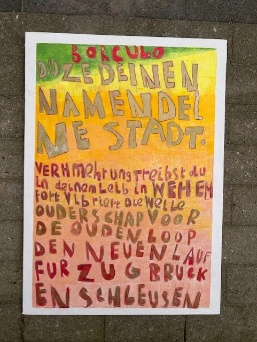 BORCULO
DUZE DEINEN
NAMEN DEI
NE STADT.
VERHMEHRUNG treibst du
in deinem Leib in WEHEM
fort vibriert die Welle
OUDERSCHAP VOOR
DE OUDEN LOOP
DEN NEUEN LAUF
FUR ZUGBRUCK
EN SCHLEUSEN